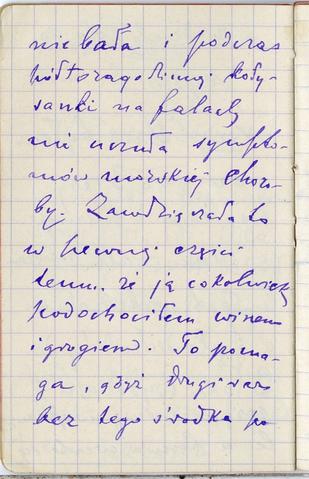 nie bała i podczas
półtoragodzinnej koły-
sanki na falach
nie uczuła sympto-
mów morskiej choro-
by. Zawdzięczała to
w pewnej części
temu.. że ją cokolwiek
podochociłem winem
i grogiem. To poma-
ga, gdyż drugi raz
bez tego środka po